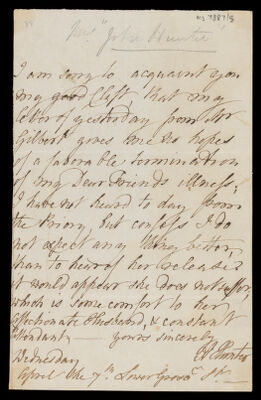 MS 7887/5
Mrs "John Hunter"
I am sorry to acquaint you
my good Clift, that my
letter of yesterday from Mr
Gilbert gives me no hopes
of a favorable termination
of my Dear Friends illness;
I have not heard to day from
the Priory, but confess I do
not expect any thing better,
than to hear of her release:
it would appear she does not suffer,
which is some comfort to her
affectionate Husband, & constant
attendant, — yours sincerely
A Hunter
Wednesday
April the 7th Lower Grosr St.